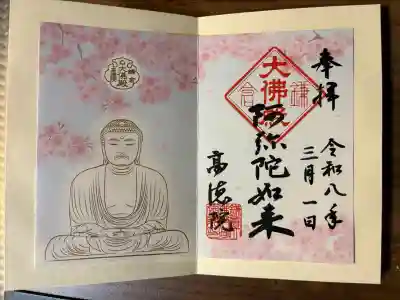 奉拝
令和八年
三月一日
大佛殿
鎌倉
阿弥陀如来
高徳院
大佛殿